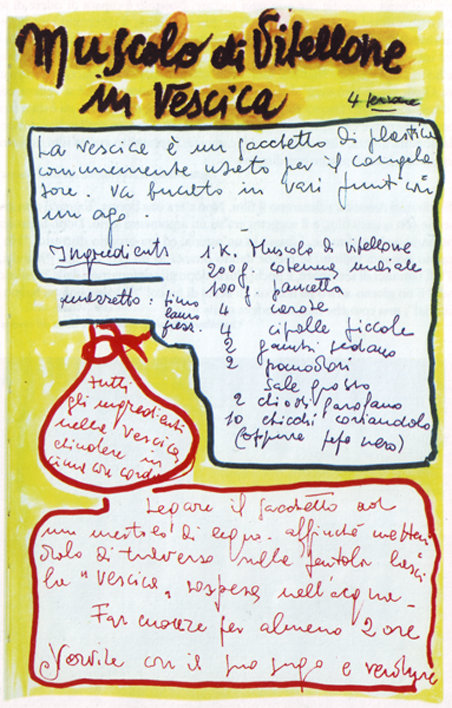 Muscolo di Vitellone
in Vescica
4 persone
La vescica è un sacchetto di plastica
comunemente usato per il congela
tore. Va bucato in vari punti con
un ago.
Ingredienti 1 K. Muscolo di vitellone
200 g. cotenna maiale
100 g. pancetta
mazzetto: timo
lauro
prezz.
4 carote
4 cipolle piccole
2 gambi sedano
2 pomodori
Sale grosso
2 chiodi garofano
10 chicchi coriandolo
(oppure pepe nero)
tutti
gli ingredienti
nella Vescica
chiudere in
cima con corda
Legare il sacchetto ad
un mestolo di legno. affinché metten
dolo di traverso sulla pentola lasci
la "vescica" sospesa nell'acqua -
Far cuocere per almeno 2 ore
Servite con il suo sugo e verdure